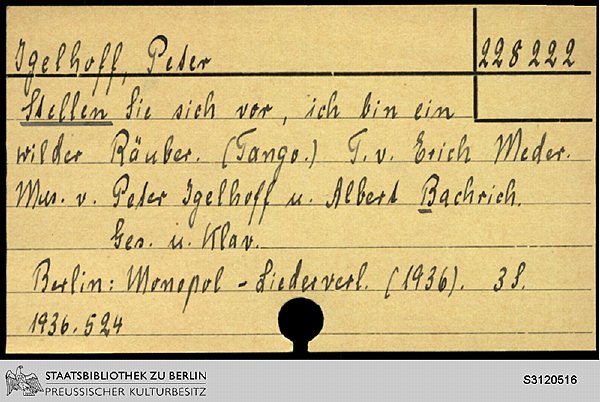 Igelhoff, Peter 228222
Stellen Sie sich vor, ich bin ein
wilder Räuber. (Tango.) T. v. Erich Meder.
Mus. v. Peter Igelhoff u. Albert Bachrich.
Ges. u. Klav.
Berlin: Monopol-Liederverl. (1936). 3 S.
1936.524
STAATSBIBLIOTHEK ZU BERLIN
PREUSSISCHER KULTURBESITZ
S3120516